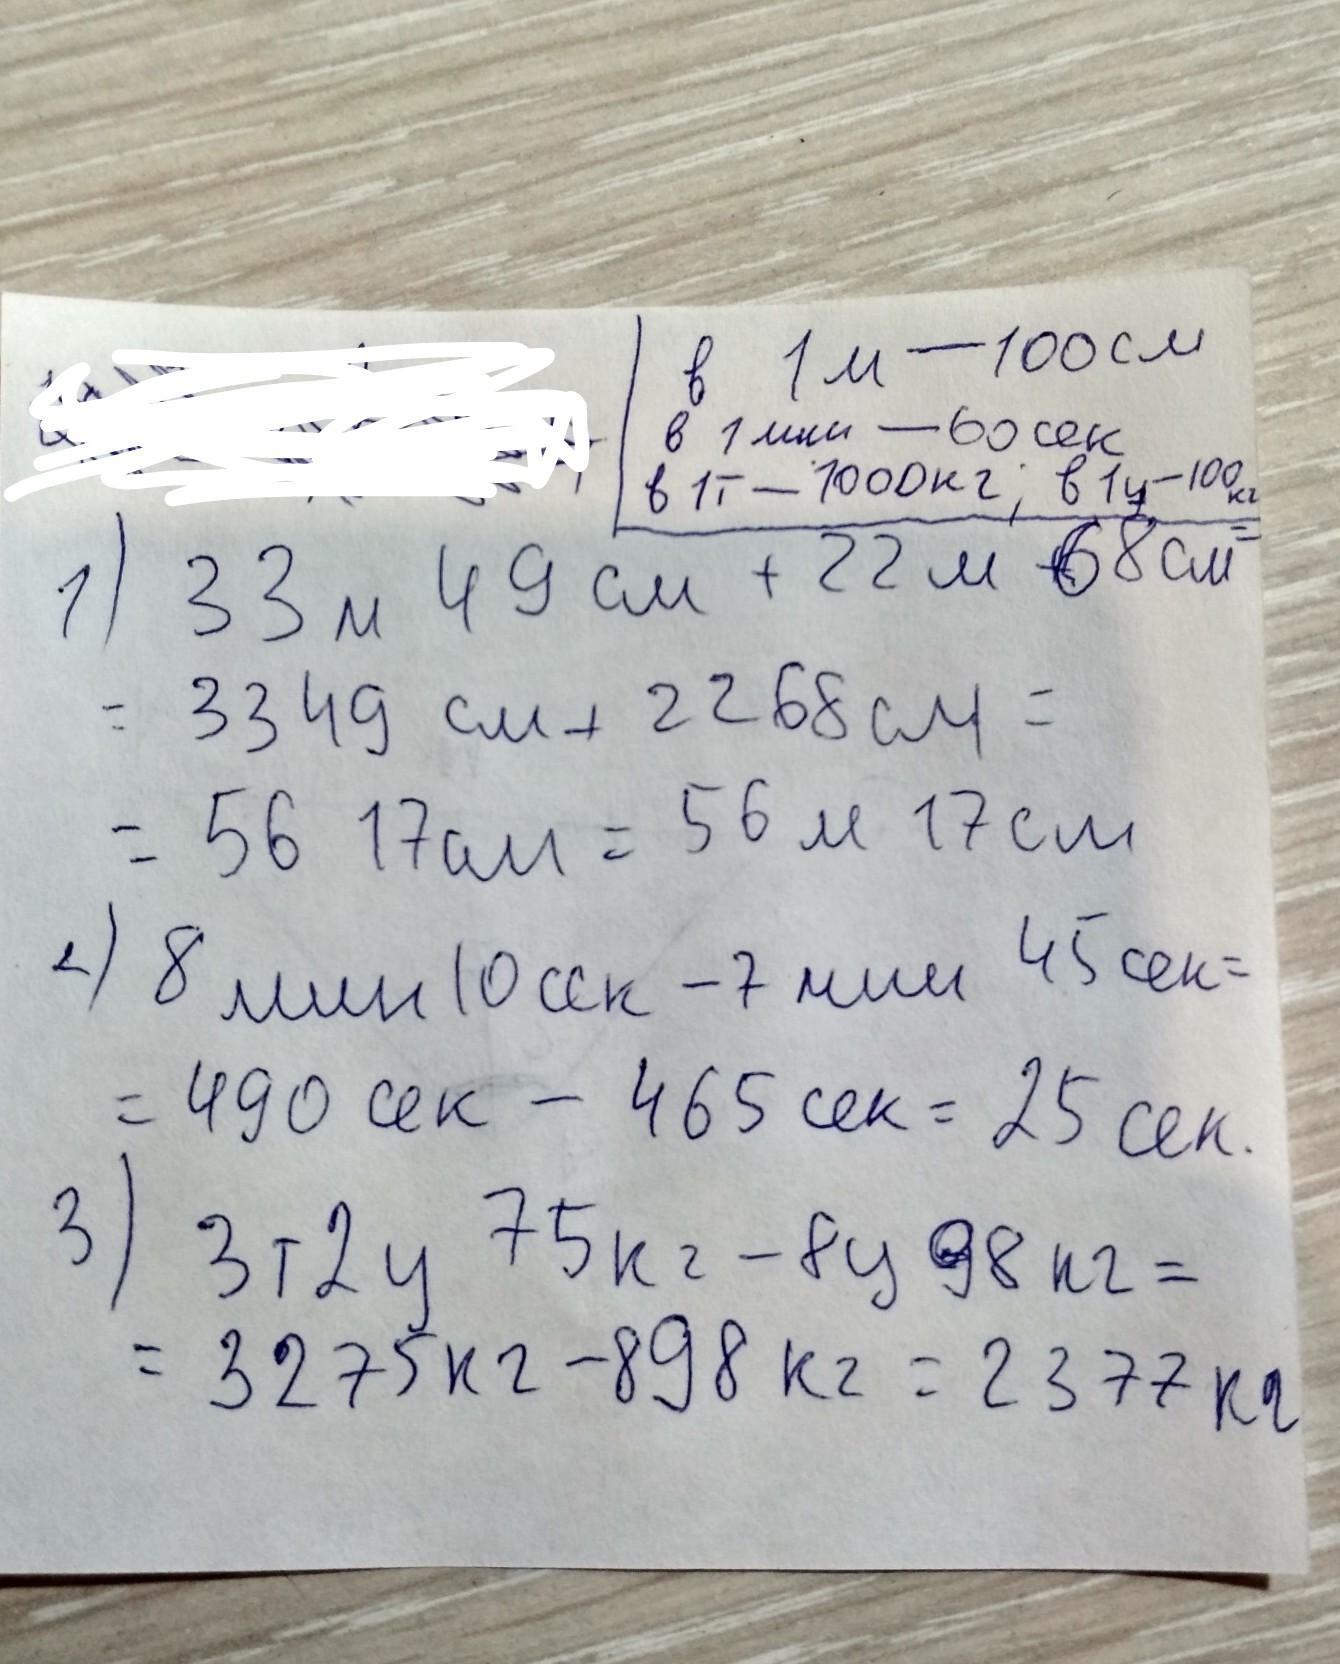 в 1м — 100см
в 1 мин — 60 сек
в 1т — 1000кг; в 1ц — 100 кг
1) 33м 49 см + 22 м 68 см =
= 3349 см + 2268 см =
= 56 17 см = 56 м 17 см
2) 8 мин 10 сек - 7 мин 45 сек =
= 490 сек - 465 сек = 25 сек.
3) 3т 2ц 75кг - 8ц 98 кг =
= 3275кг - 898 кг = 2377 кг